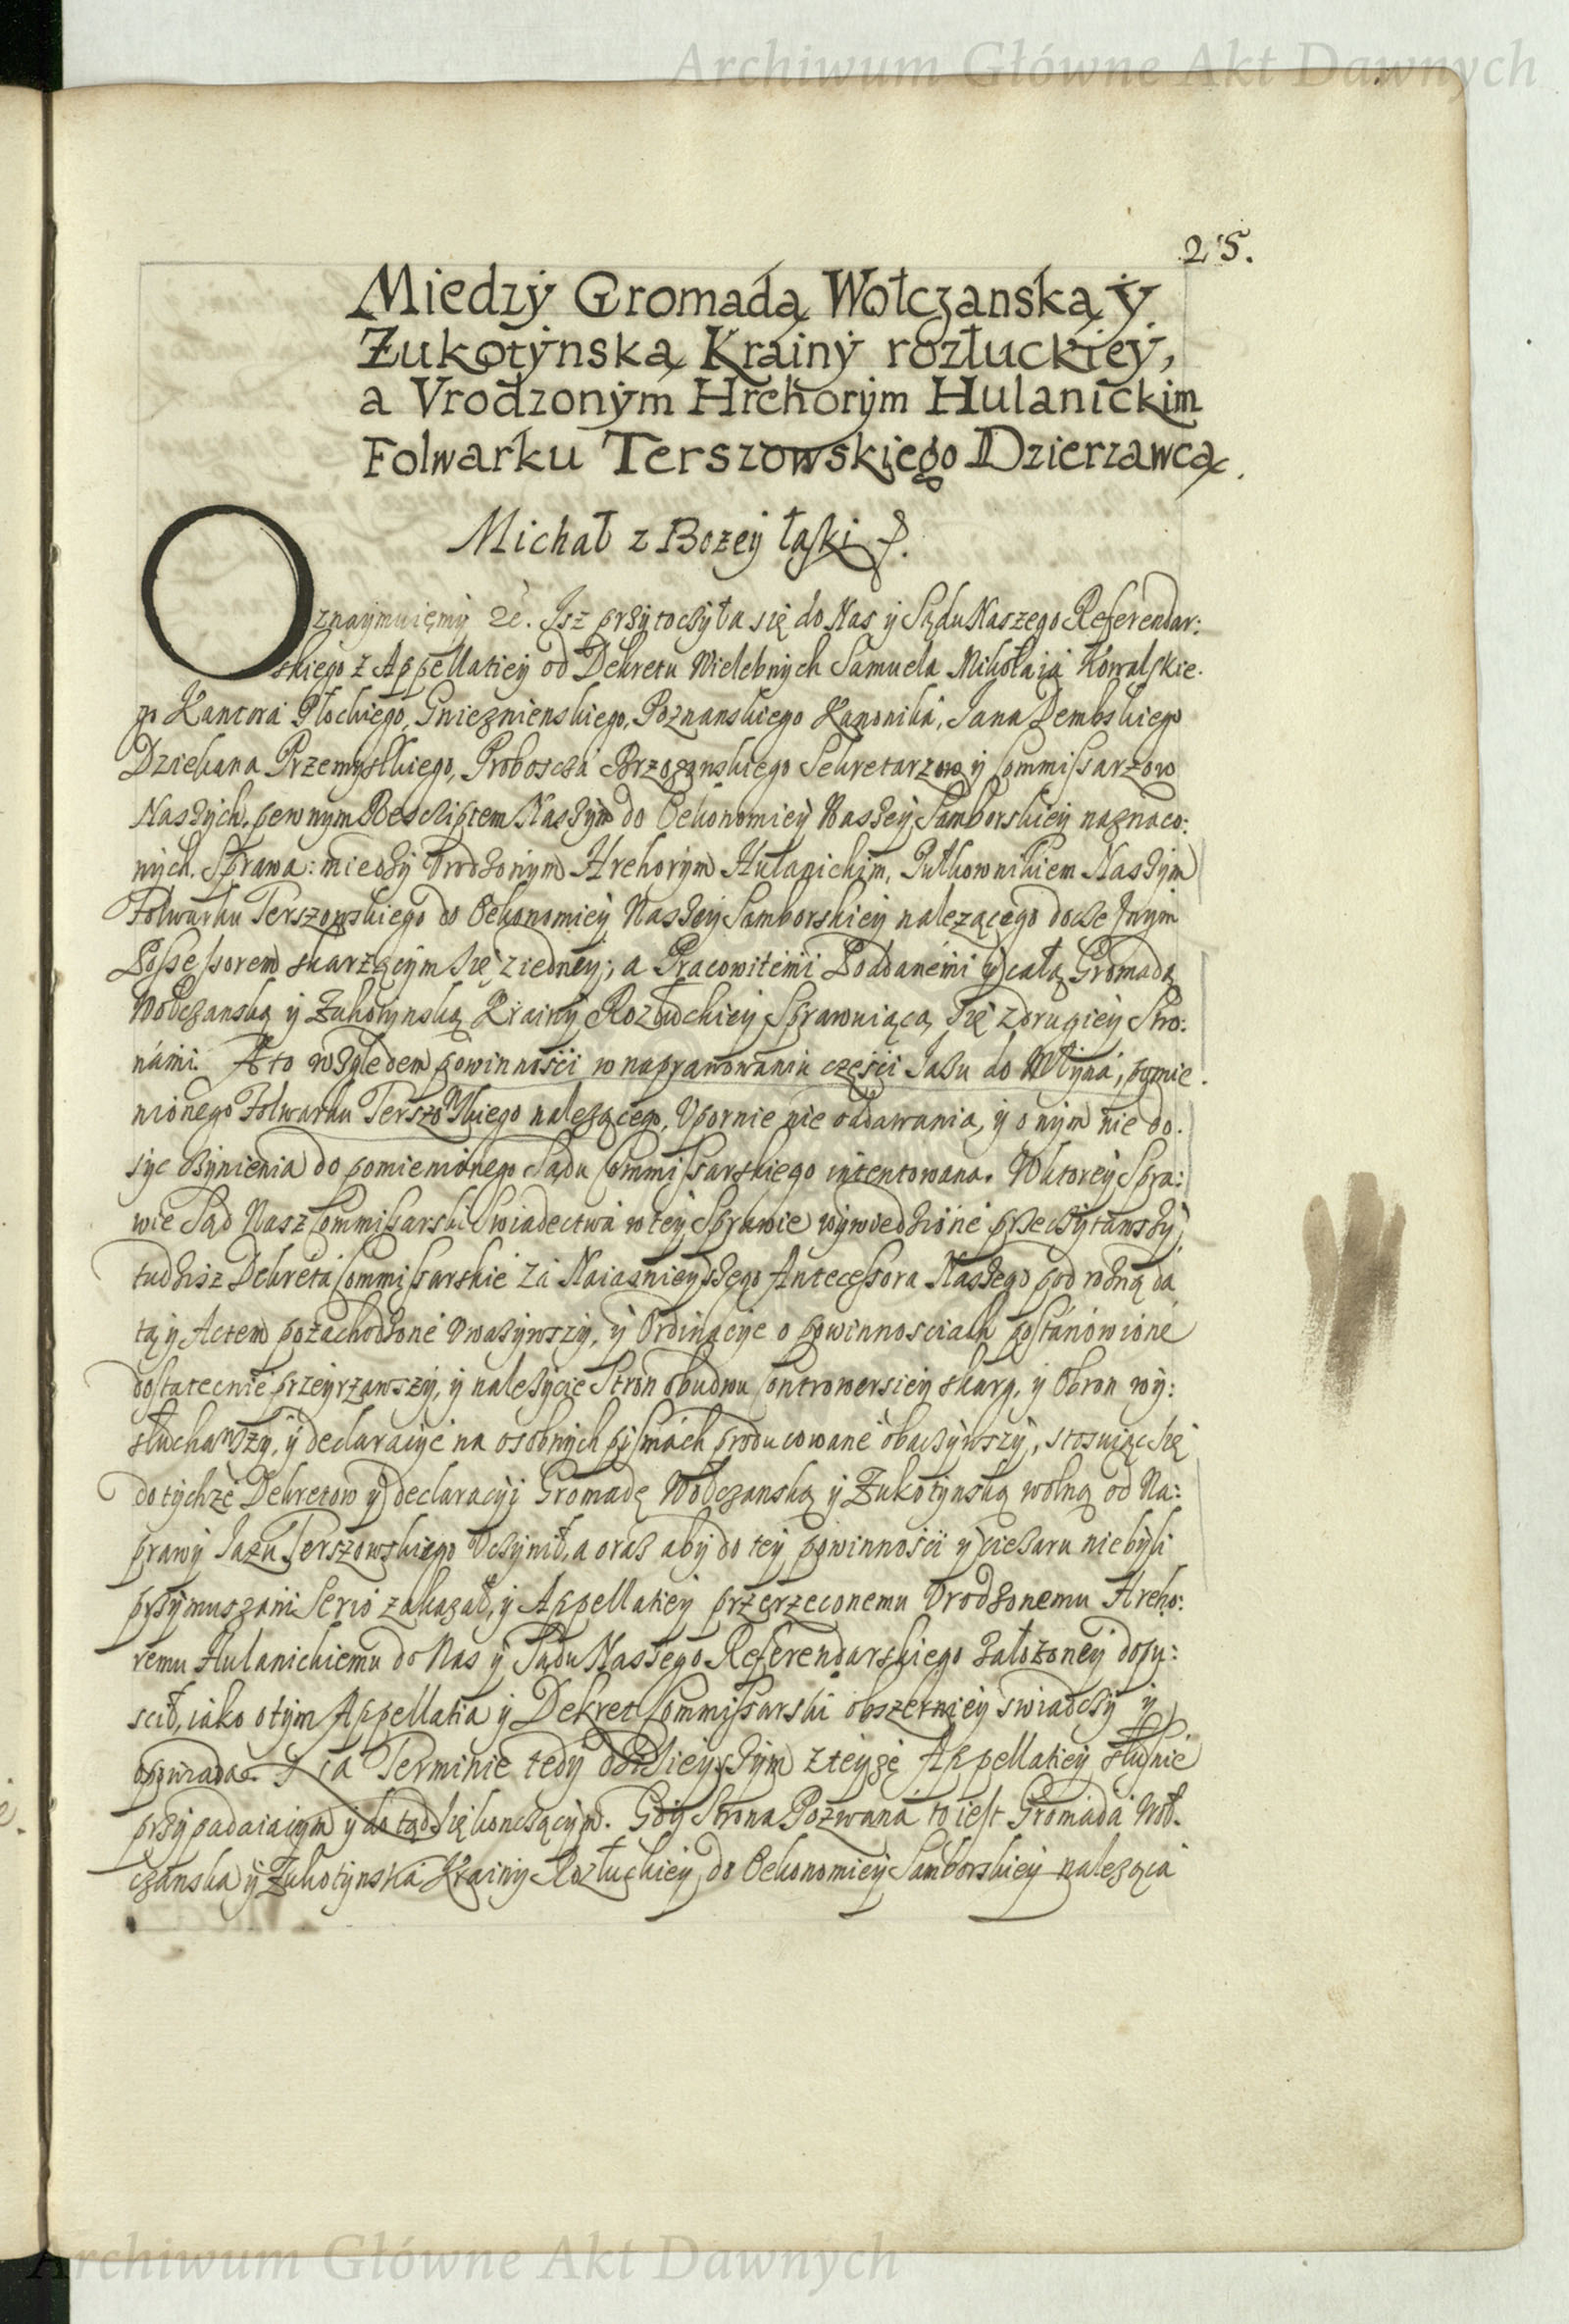 Archiwum Główne Akt Dawnych
25.
Miedzÿ Gromadą Wołczanską ÿ
Zukotÿnską Krainÿ rozłuckieÿ,
a Vrodzonÿm Hrehorÿm Hulanickim
Folwarku Terszowskiego Dzierzawcą.
Michał z Bozeÿ łaski &.
Oznaÿmuięmÿ &c. Isz przÿtoczÿła się do Nas ÿ Sądu Naszego Referendar:
skiego z Appellatieÿ od Dekretu Wielebnÿch Samuela Mikołaia Kowalskie-
go Kantora Płockiego, Gnieznienskiego, Poznanskiego Kanonika, Jana Dembskiego
Dziekana Przemÿslkiego, Proboscza Brzozanskiego Sekretarzow ÿ Commissarzow
Naszÿch, pewnÿm Rescriptem Naszÿm do Oekonomieÿ Naszeÿ Samborskieÿ naznaco:
nÿch. Sprawa: miedzÿ Vrodzonÿm Hrehorÿm Hulanickim, Pułkownikiem Naszÿm
Folwarku Terszowskiego do Oekonomieÿ Naszeÿ Samborskieÿ nalezącego doze Jnÿm
Possessorem skarzącÿm się z iedneÿ; a Pracowitemi Poddanemi ÿ całą Gromadą
Wołczanską ÿ Zukotÿnską Krainÿ Rozłuckieÿ Sprawuiącą się z drugieÿ Stro:
nami. A to wzgledem powinnosci w naprawowaniu częsci Jazu do Młÿna, pomie-
nionego Folwarku Terszowskiego nalezącego, Vpornie nie oddawania, ÿ onÿm nie do-
sÿc czÿnienia do pomienionego Sądu Commissarskiego intentowana. W ktoreÿ Spra:
wie Sąd Nasz Commissarski Swiadectwa w teÿ Sprawie wÿwiedzione przeczÿtawszÿ,
tudzisz Dekreta Commissarskie za Naiasnieÿszego Antecessora Naszego pod rozną da
tą ÿ Actem pozachodzone Vwazÿwszÿ, ÿ Ordinacÿe o powinnosciach postanowione
dostatecnie przeÿrzawszÿ, ÿ nalezÿcie Stron obudwu Controwersieÿ skarg, ÿ Obron wÿ:
słuchawszÿ, ÿ declaracÿe na osobnÿch pismach producowane obaczÿwszÿ, stosuiąc się
do tÿchze Dekretow ÿ declaracÿÿ Gromadę Wołczanską ÿ Zukotÿnską wolną od Na:
prawÿ Jazu Terszowskiego Vczÿnił, a oraz abÿ do teÿ powinnosci ÿ ciezaru niebÿli
przÿmuszani serio zakazał, ÿ Appellatieÿ przerzeconemu Vrodzonemu Hreho:
remu Hulanickiemu do Nas ÿ Sądu Naszego Referendarskiego załozoneÿ dopu:
scił, iako o tÿm Appellatia ÿ Dekret Commissarski obszernieÿ swiadczÿ ÿ
opowiada. Na Terminie tedÿ dzisieÿszÿm z teÿze Appellatieÿ słusnie
przÿpadaiącÿm ÿ do tąd się konczącÿm. Gdÿ Strona Pozwana to iest Gromada Woł-
czanska ÿ Zukotÿnska Krainÿ Rozłuckieÿ do Oekonomieÿ Samborskieÿ naleząca
Archiwum Główne Akt Dawnych